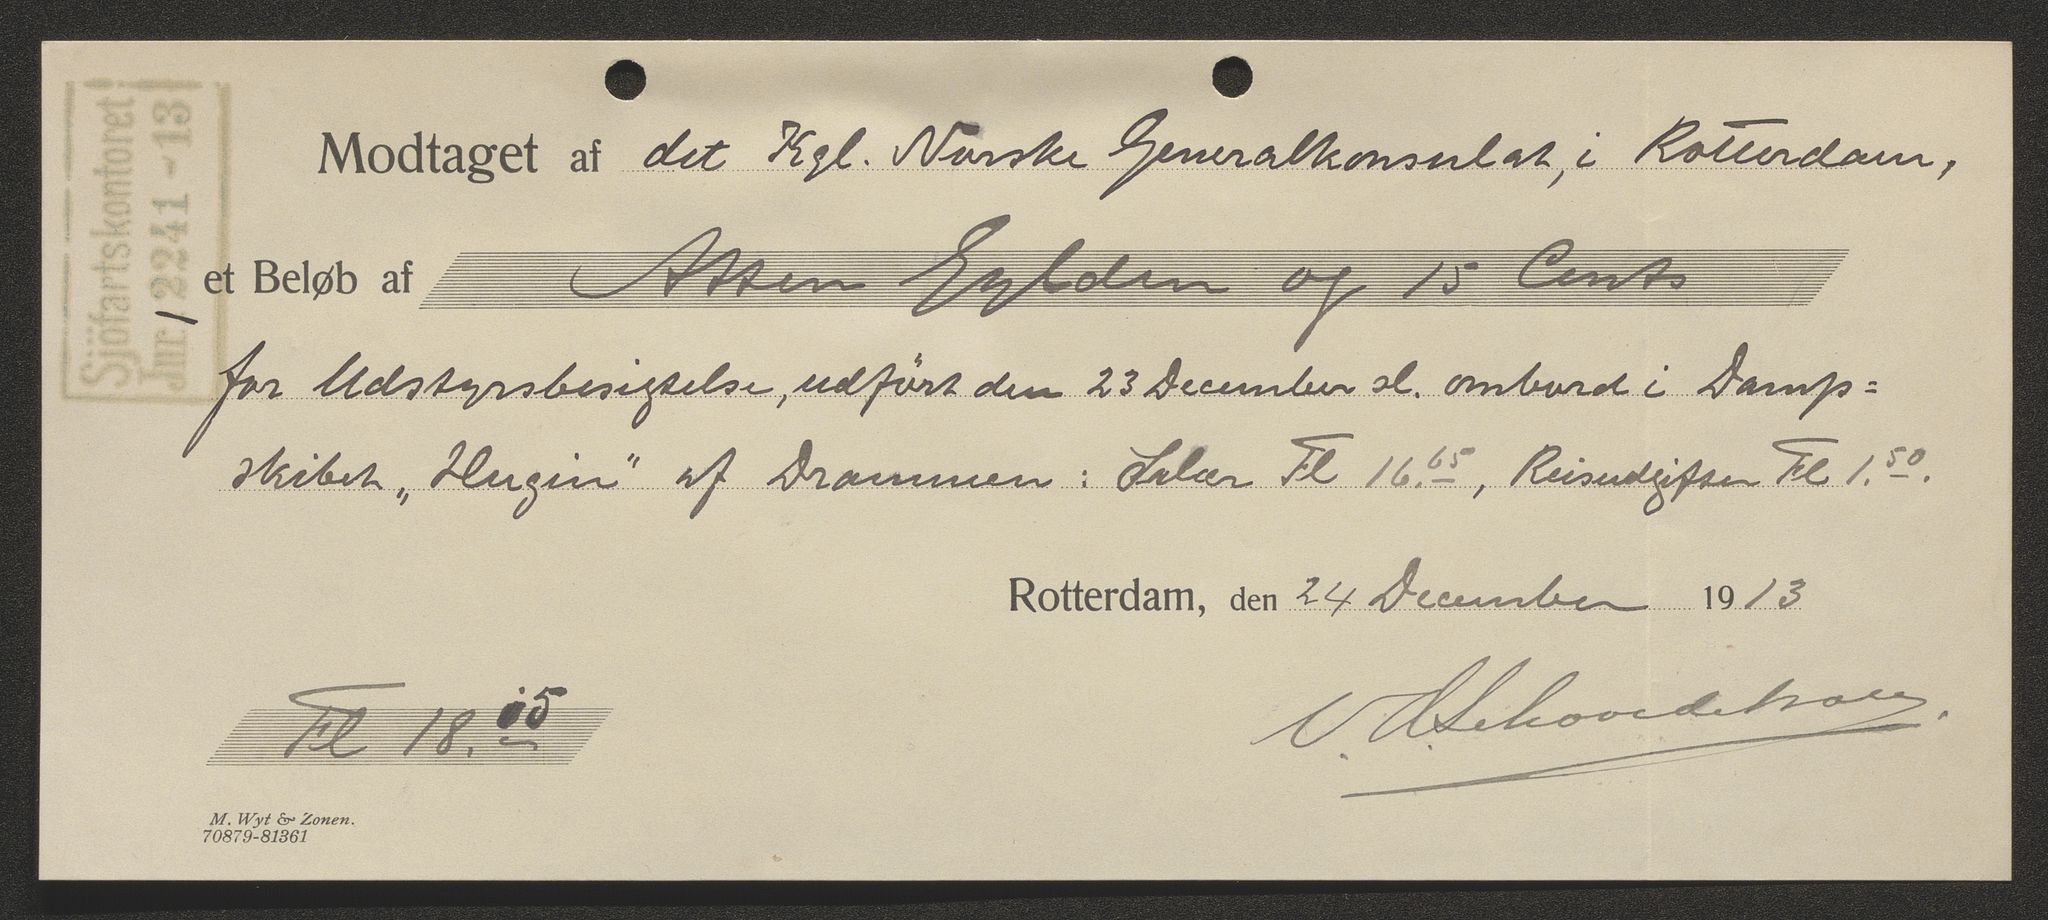 Sjöfartskontoret
Jnr. 2241 - 13
Modtaget af det Kgl. Norske Generalkonsulat, i Rotterdam,
et Beløb af Atten Gylden og 15 Cents
for Udstyrsbesigtelse, udført den 23 December sl. ombord i Damp=
skibet „Hugin" af Drammen : Salær Fl 16.65, Reiseudgifter Fl 1.50.
Rotterdam, den 24 December 1913
Fl 18.15
M. Wyt & Zonen.
70879-81361